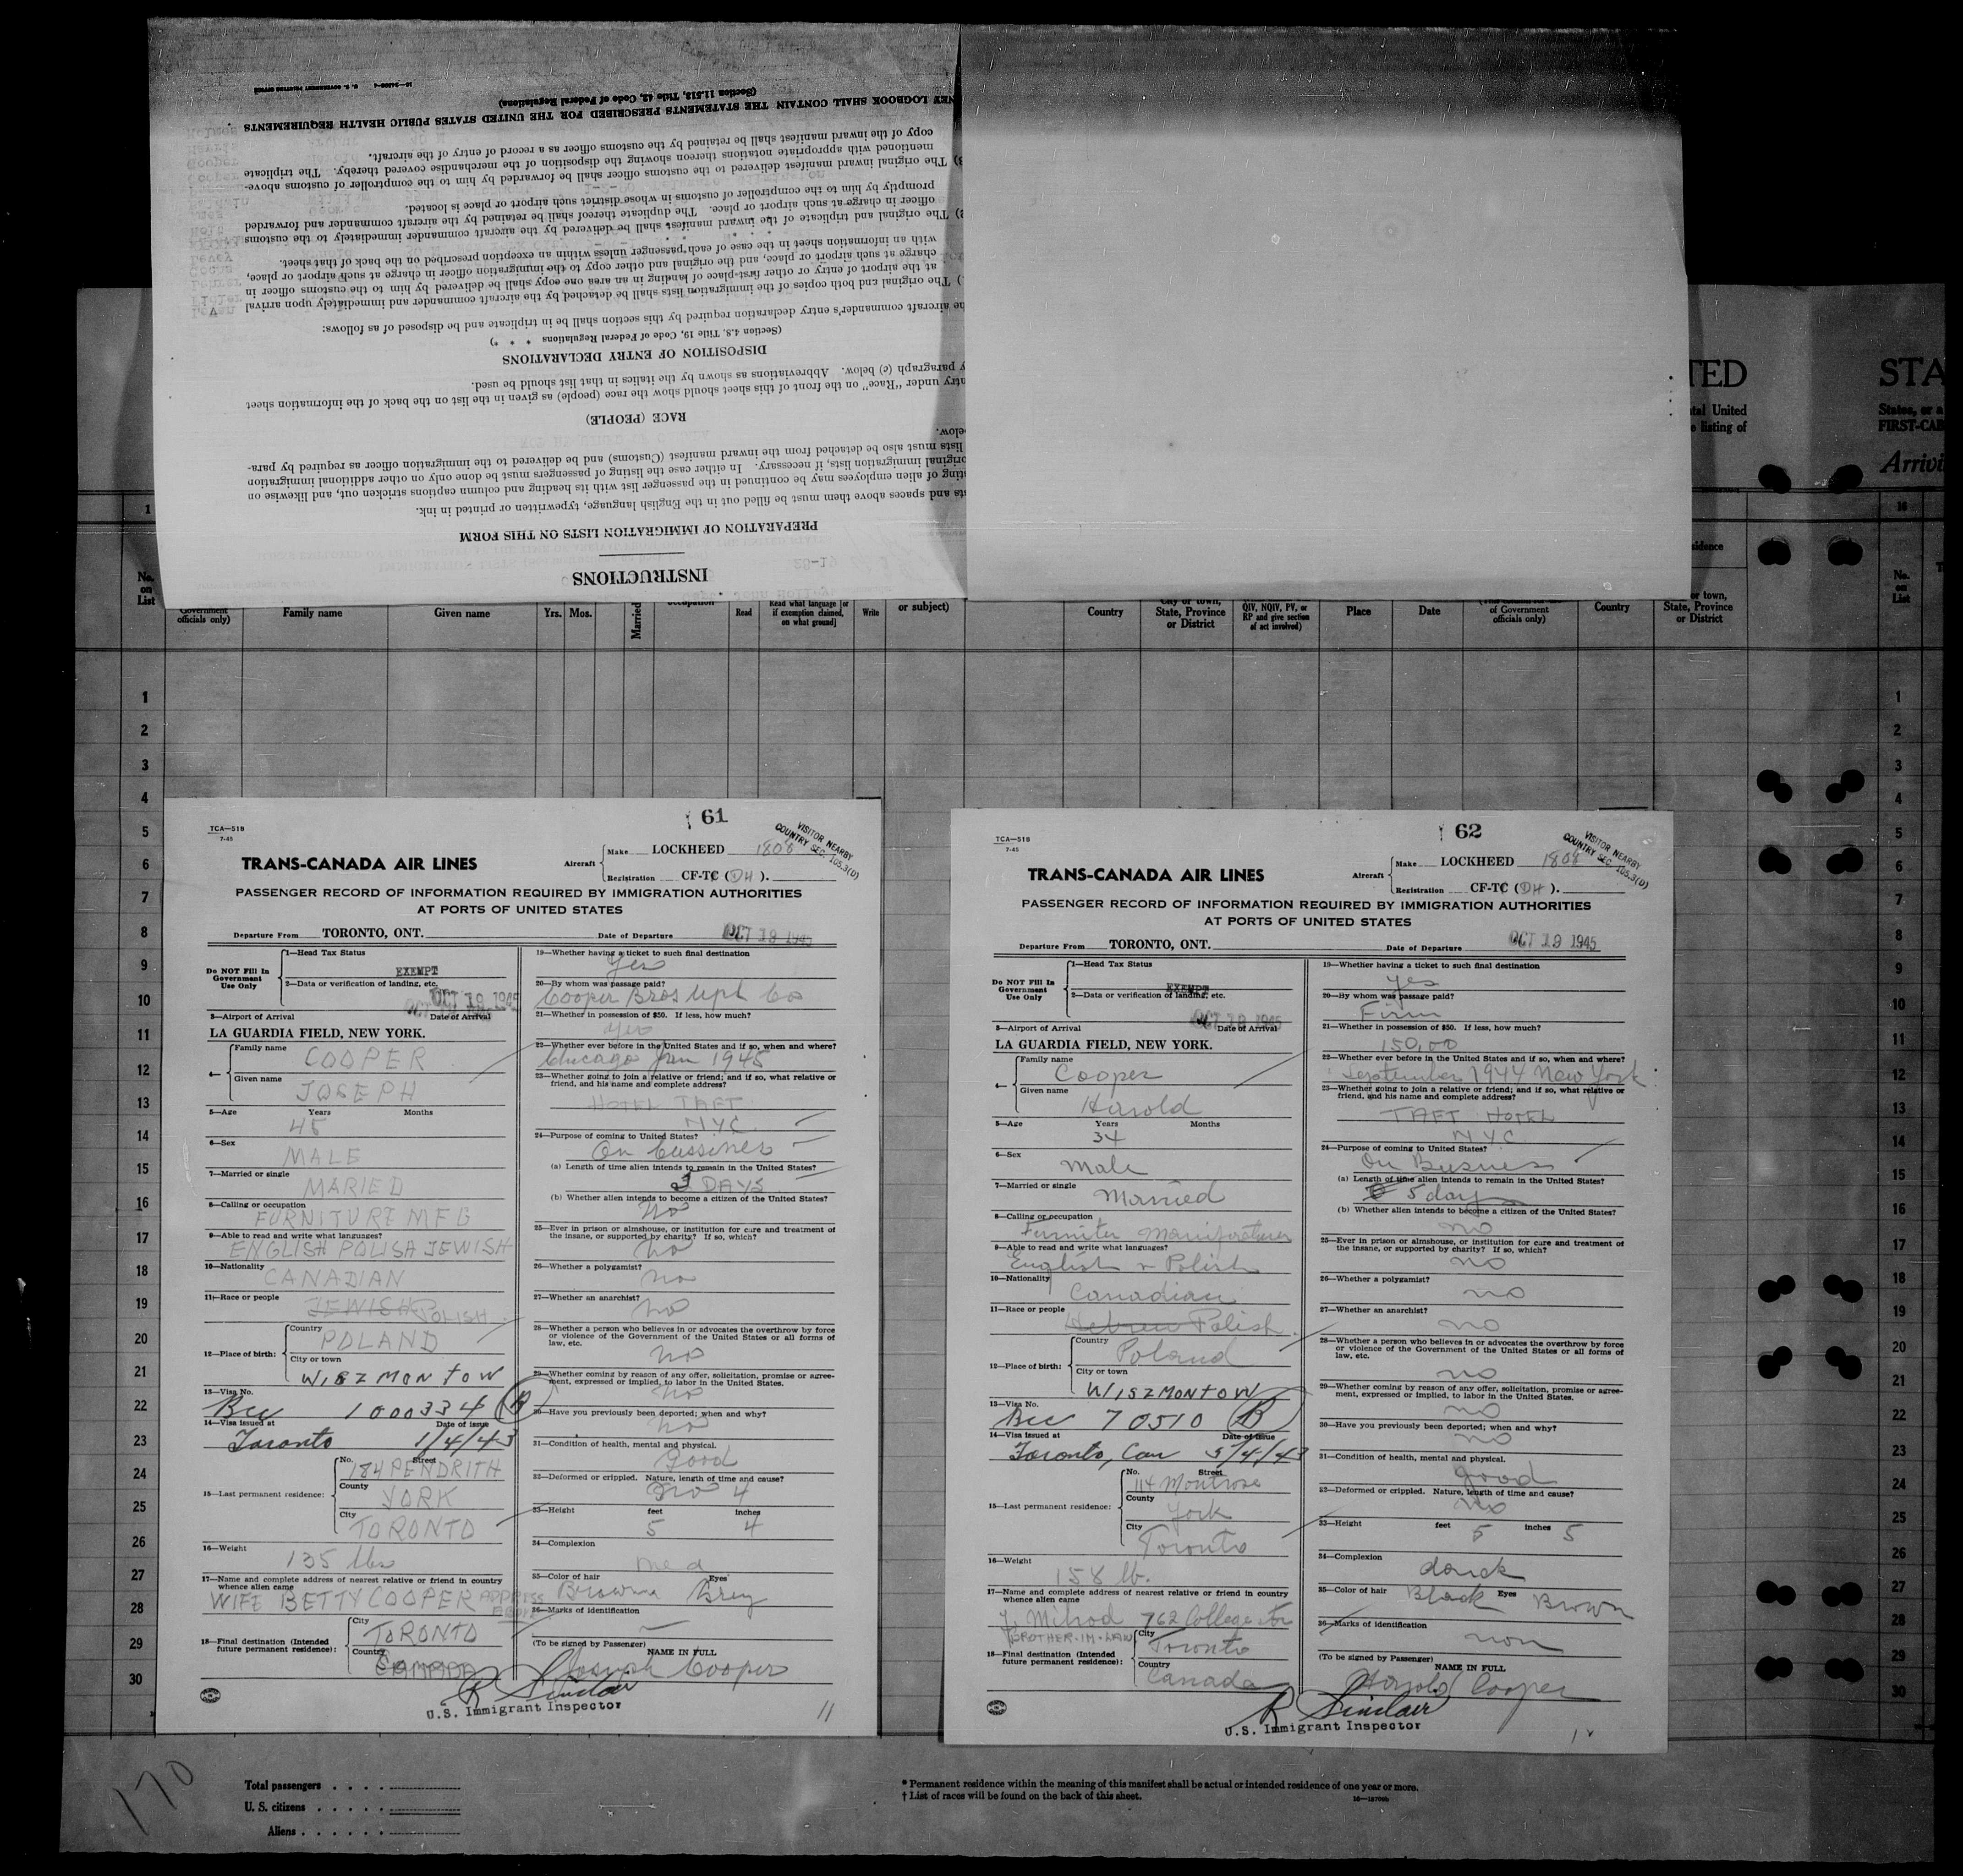 (Section 11.513, Title 42, Code of Federal Regulations)
NEY LOGBOOK SHALL CONTAIN THE STATEMENTS PRESCRIBED FOR THE UNITED STATES PUBLIC HEALTH REQUIREMENTS
copy of the inward manifest shall be retained by the customs officer as a record of entry of the aircraft.
mentioned with appropriate notations thereon showing the disposition of the merchandise covered thereby. The triplicate
3) The original inward manifest delivered to the customs officer shall be forwarded by him to the comptroller of customs above-
promptly by him to the comptroller of customs in whose district such airport or place is located.
officer in charge at such airport or place. The duplicate thereof shall be retained by the aircraft commander and forwarded
2) The original and triplicate of the inward manifest shall be delivered by the aircraft commander immediately to the customs
with an information sheet in the case of each passenger unless within an exception prescribed on the back of that sheet.
charge at such airport or place, and the original and other copy to the immigration officer in charge at such airport or place,
at the airport of entry or other first place of landing in an area one copy shall be delivered by him to the customs officer in
) The original and both copies of the immigration lists shall be detached by the aircraft commander and immediately upon arrival
he aircraft commander's entry declaration required by this section shall be in triplicate and be disposed of as follows:
(Section 4.8, Title 19, Code of Federal Regulations * * *)
DISPOSITION OF ENTRY DECLARATIONS
y paragraph (c) below. Abbreviations as shown by the italics in that list should be used.
ntry under "Race" on the front of this sheet should show the race (people) as given in the list on the back of the information sheet
RACE (PEOPLE)
below.
lists must also be detached from the inward manifest (Customs) and be delivered to the immigration officer as required by para-
original immigration lists, if necessary. In either case the listing of passengers must be done only on other additional immigration
sting of alien employees may be continued in the passenger list with its heading and column captions stricken out, and likewise on
sts and spaces above them must be filled out in the English language, typewritten or printed in ink.
PREPARATION OF IMMIGRATION LISTS ON THIS FORM
INSTRUCTIONS
TED STA
tal United States, or a
e listing of FIRST-CAB
Arrivi
1 16
No. on List
Government officials only) Family name Given name Yrs. Mos. Married occupation Read Read what language [or if exemption claimed, on what ground] Write or subject)
Country City or town, State, Province or District QIV, NQIV, PV, or RP and give section of act involved) Place Date of Government officials only) Country or town, State, Province or District
No. on List
1
2
3
4
5
6
7
8
9
10
11
12
13
14
15
16
17
18
19
20
21
22
23
24
25
26
27
28
29
30
61
TCA—518
7-45
VISITOR NEARBY
COUNTRY SEC. 105.3(D)
TRANS-CANADA AIR LINES
Aircraft Make LOCKHEED 1808
Registration CF-TC (DH).
PASSENGER RECORD OF INFORMATION REQUIRED BY IMMIGRATION AUTHORITIES
AT PORTS OF UNITED STATES
Departure From TORONTO, ONT. Date of Departure OCT 19 1945
Do NOT Fill In Government Use Only
1—Head Tax Status
EXEMPT
2—Data or verification of landing, etc.
OCT 19 1945
3—Airport of Arrival Date of Arrival
LA GUARDIA FIELD, NEW YORK.
4— Family name COOPER
Given name JOSEPH
5—Age Years Months
45
6—Sex
MALE
7—Married or single
MARIED
8—Calling or occupation
FURNITURE MFG
9—Able to read and write what languages?
ENGLISH POLISH JEWISH
10—Nationality
CANADIAN
11—Race or people
JEWISH POLISH
12—Place of birth: Country
POLAND
City or town
WISZMONTOW
13—Visa No.
Bcc 1000334 (B)
14—Visa issued at Date of issue
Toronto 1/4/43
15—Last permanent residence: No. Street
184 PENDRITH
County
YORK
City
TORONTO
16—Weight
135 lbs
17—Name and complete address of nearest relative or friend in country whence alien came
WIFE BETTY COOPER ADDRESS ABOVE
18—Final destination (Intended future permanent residence): City
TORONTO
Country
CANADA
19—Whether having a ticket to such final destination
Yes
20—By whom was passage paid?
Cooper Bros Uph Co
21—Whether in possession of $50. If less, how much?
yes
22—Whether ever before in the United States and if so, when and where?
Chicago Jan 1945
23—Whether going to join a relative or friend; and if so, what relative or friend, and his name and complete address?
HOTEL TAFT
NYC
24—Purpose of coming to United States?
On bussines
(a) Length of time alien intends to remain in the United States?
DAYS
(b) Whether alien intends to become a citizen of the United States?
No
25—Ever in prison or almshouse, or institution for care and treatment of the insane, or supported by charity? If so, which?
no
26—Whether a polygamist?
no
27—Whether an anarchist?
no
28—Whether a person who believes in or advocates the overthrow by force or violence of the Government of the United States or all forms of law, etc.
no
29—Whether coming by reason of any offer, solicitation, promise or agreement, expressed or implied, to labor in the United States.
no
30—Have you previously been deported; when and why?
no
31—Condition of health, mental and physical.
Good
32—Deformed or crippled. Nature, length of time and cause?
no 4
33—Height feet inches
5 4
34—Complexion
med
35—Color of hair Eyes
Brown Grey
36—Marks of identification
(To be signed by Passenger) NAME IN FULL
Joseph Cooper
R Sinclair
U.S. Immigrant Inspector
11
62
TCA—518
7-45
VISITOR NEARBY
COUNTRY SEC. 105.3(D)
TRANS-CANADA AIR LINES
Aircraft Make LOCKHEED 1808
Registration CF-TC (DH).
PASSENGER RECORD OF INFORMATION REQUIRED BY IMMIGRATION AUTHORITIES
AT PORTS OF UNITED STATES
Departure From TORONTO, ONT. Date of Departure OCT 19 1945
Do NOT Fill In Government Use Only
1—Head Tax Status
EXEMPT
2—Data or verification of landing, etc.
OCT 19 1945
3—Airport of Arrival Date of Arrival
LA GUARDIA FIELD, NEW YORK.
4— Family name
Cooper
Given name
Harold
5—Age Years Months
34
6—Sex
Male
7—Married or single
Married
8—Calling or occupation
Furniter Manifacturer
9—Able to read and write what languages?
English & Polish
10—Nationality
Canadian
11—Race or people
Hebrew Polish
12—Place of birth: Country
Poland
City or town
WISZMONTOW
13—Visa No.
Bcc 70510 (B)
14—Visa issued at Date of issue
Toronto, Can 5/4/43
15—Last permanent residence: No. Street
114 Montrose
County
York
City
Toronto
16—Weight
158 lb.
17—Name and complete address of nearest relative or friend in country whence alien came
J. Milrod 762 College Tor
BROTHER-IN-LAW
18—Final destination (Intended future permanent residence): City
Toronto
Country
Canada
19—Whether having a ticket to such final destination
Yes
20—By whom was passage paid?
Firm
21—Whether in possession of $50. If less, how much?
150,00
22—Whether ever before in the United States and if so, when and where?
September 1944 New York
23—Whether going to join a relative or friend; and if so, what relative or friend, and his name and complete address?
TAFT HOTEL
NYC
24—Purpose of coming to United States?
On Busines
(a) Length of time alien intends to remain in the United States?
5 days
(b) Whether alien intends to become a citizen of the United States?
no
25—Ever in prison or almshouse, or institution for care and treatment of the insane, or supported by charity? If so, which?
no
26—Whether a polygamist?
no
27—Whether an anarchist?
no
28—Whether a person who believes in or advocates the overthrow by force or violence of the Government of the United States or all forms of law, etc.
no
29—Whether coming by reason of any offer, solicitation, promise or agreement, expressed or implied, to labor in the United States.
no
30—Have you previously been deported; when and why?
no
31—Condition of health, mental and physical.
good
32—Deformed or crippled. Nature, length of time and cause?
no
33—Height feet 5 inches 5
34—Complexion
darck
35—Color of hair Black Eyes Brown
36—Marks of identification
non
(To be signed by Passenger) NAME IN FULL
Harold Cooper
R Sinclair
U.S. Immigrant Inspector
170
Total passengers
U. S. citizens
Aliens
* Permanent residence within the meaning of this manifest shall be actual or intended residence of one year or more.
† List of races will be found on the back of this sheet.